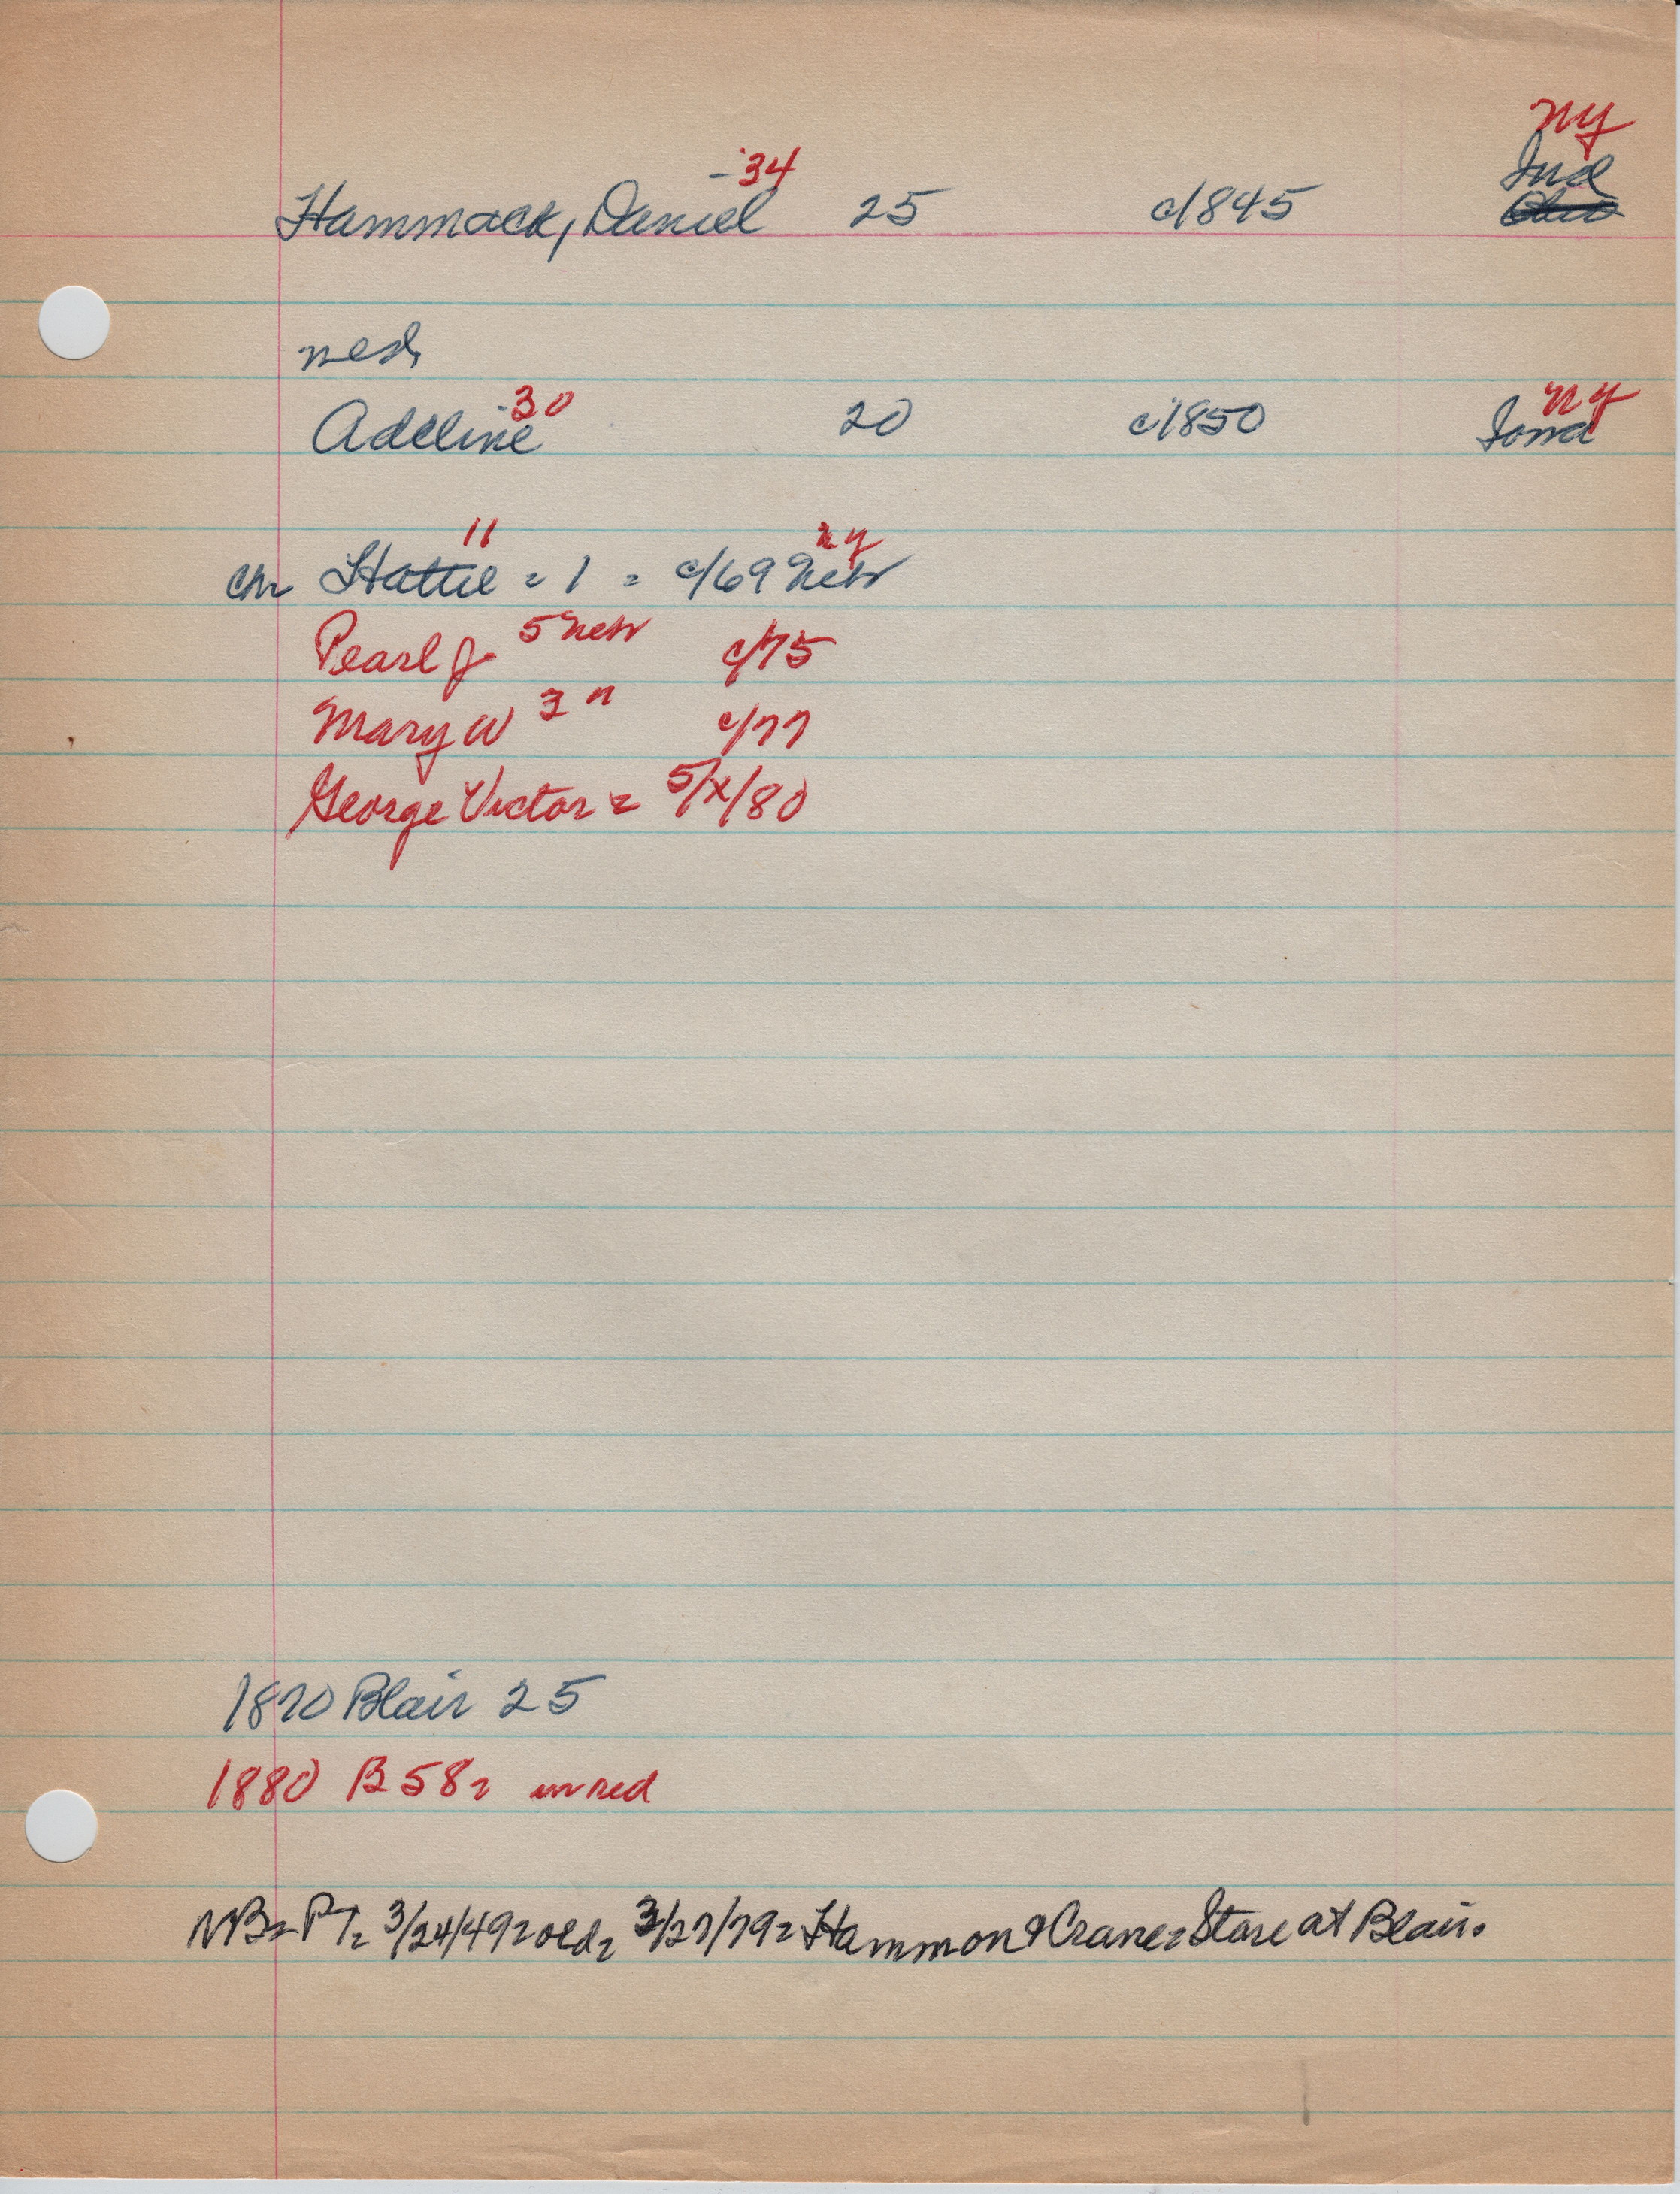 NY
-'34 Ind
Hammack, Daniel 25 c/1845 Ohio
med,
-30 NY
Adeline 20 c/1850 Iowa
11 NY
ch Hattie = 1 = c/69 Nebr
Pearl J 5 Nebr c/75
Mary W 3 " c/77
George Victor = 5/x/80
1870 Blair 25
1880 B 58 = in red
NB = PT = 3/24/49 = old = 3/27/79 = Hammon & Crane = Store at Blair.